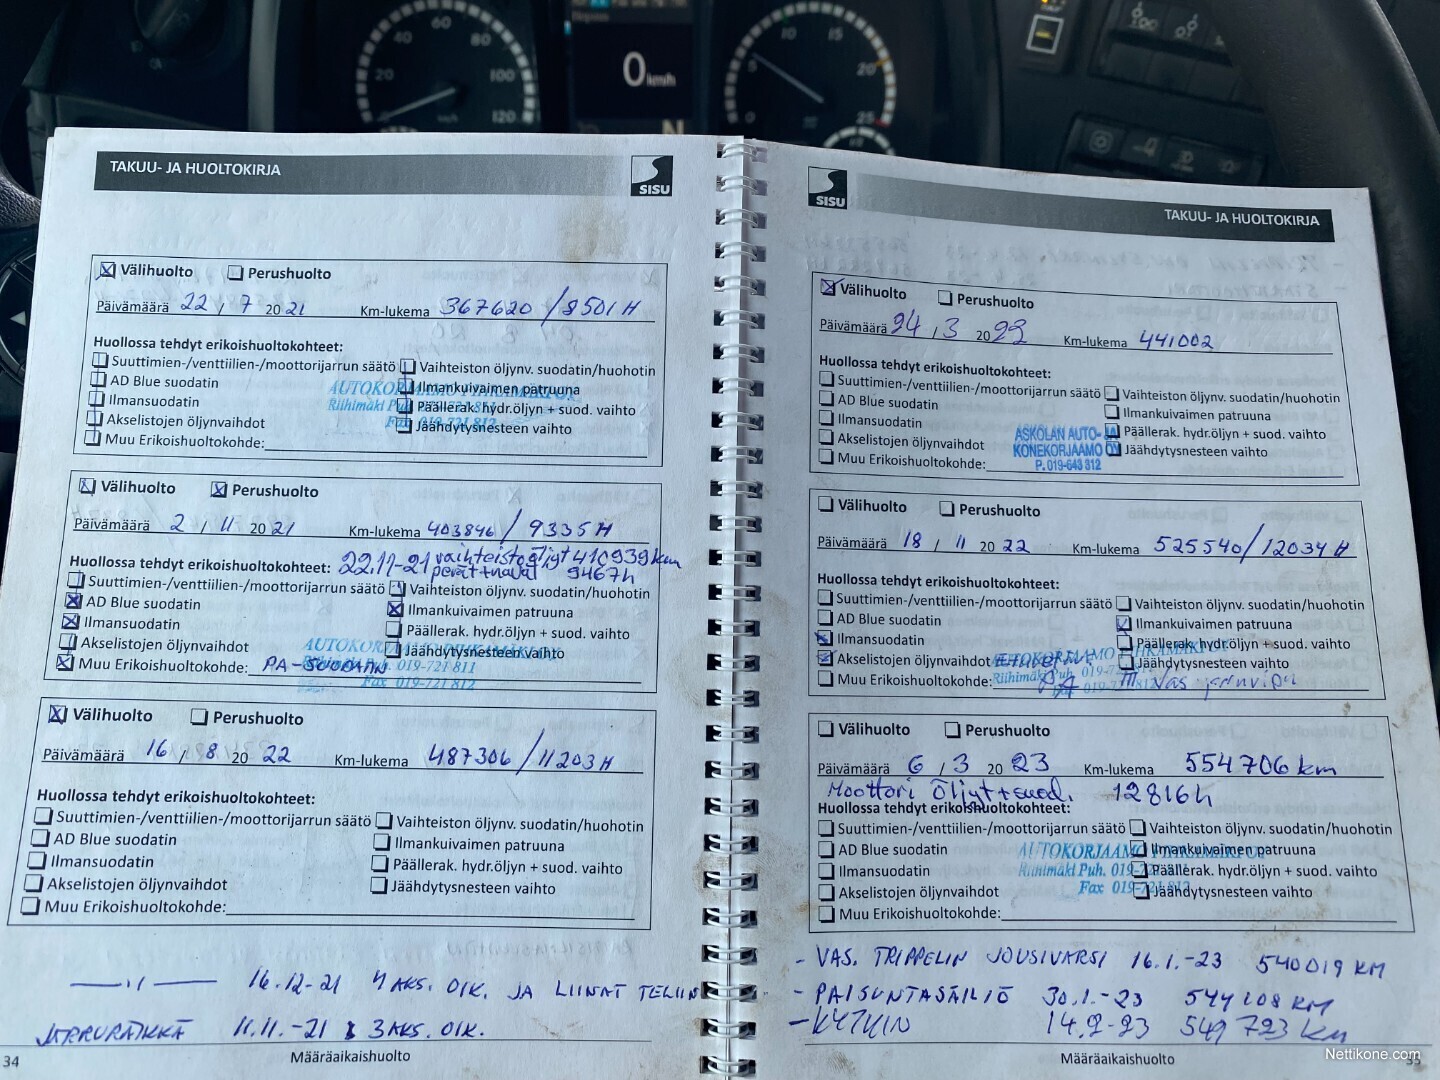 20
40
60
80
100
120
0 km/h
N
0
10
15
20
25
TAKUU- JA HUOLTOKIRJA
SISU
Välihuolto Perushuolto
Päivämäärä 22 / 7 2021 Km-lukema 367620 / 8501 H
Huollossa tehdyt erikoishuoltokohteet:
Suuttimien-/venttiilien-/moottorijarrun säätö Vaihteiston öljynv. suodatin/huohotin
AD Blue suodatin Ilmankuivaimen patruuna
Ilmansuodatin Päällerak. hydr.öljyn + suod. vaihto
Akselistojen öljynvaihdot Jäähdytysnesteen vaihto
Muu Erikoishuoltokohde:
AUTOKORJAAMO
Riihimäki Puh. 019-721 811
Fax 019-721 812
Välihuolto Perushuolto
Päivämäärä 2 / 11 2021 Km-lukema 403846 / 9335 H
Huollossa tehdyt erikoishuoltokohteet: 22.11-21 vaihteistoöljyt 410939km
perät+navat 9467h
Suuttimien-/venttiilien-/moottorijarrun säätö Vaihteiston öljynv. suodatin/huohotin
AD Blue suodatin Ilmankuivaimen patruuna
Ilmansuodatin Päällerak. hydr.öljyn + suod. vaihto
Akselistojen öljynvaihdot Jäähdytysnesteen vaihto
Muu Erikoishuoltokohde: PA-SUODATIN
AUTOKORJAAMO
Riihimäki Puh. 019-721 811
Fax 019-721 812
Välihuolto Perushuolto
Päivämäärä 16 / 8 2022 Km-lukema 487306 / 11203 H
Huollossa tehdyt erikoishuoltokohteet:
Suuttimien-/venttiilien-/moottorijarrun säätö Vaihteiston öljynv. suodatin/huohotin
AD Blue suodatin Ilmankuivaimen patruuna
Ilmansuodatin Päällerak. hydr.öljyn + suod. vaihto
Akselistojen öljynvaihdot Jäähdytysnesteen vaihto
Muu Erikoishuoltokohde:
—— 11 —— 16.12-21 4 AKS. OIK. JA LIINAT TELIIN
JARRURÄIKKÄ 11.11.-21 3 AKS. OIK.
34 Määräaikaishuolto
SISU
TAKUU- JA HUOLTOKIRJA
Välihuolto Perushuolto
Päivämäärä 24 / 3 2022 Km-lukema 441002
Huollossa tehdyt erikoishuoltokohteet:
Suuttimien-/venttiilien-/moottorijarrun säätö Vaihteiston öljynv. suodatin/huohotin
AD Blue suodatin Ilmankuivaimen patruuna
Ilmansuodatin Päällerak. hydr.öljyn + suod. vaihto
Akselistojen öljynvaihdot Jäähdytysnesteen vaihto
Muu Erikoishuoltokohde:
ASKOLAN AUTO- JA
KONEKORJAAMO OY
P. 019-643 812
Välihuolto Perushuolto
Päivämäärä 18 / 11 2022 Km-lukema 525540 / 12034 H
Huollossa tehdyt erikoishuoltokohteet:
Suuttimien-/venttiilien-/moottorijarrun säätö Vaihteiston öljynv. suodatin/huohotin
AD Blue suodatin Ilmankuivaimen patruuna
Ilmansuodatin Päällerak. hydr.öljyn + suod. vaihto
Akselistojen öljynvaihdot Jäähdytysnesteen vaihto
Muu Erikoishuoltokohde: III vas
AUTOKORJAAMO
Riihimäki Puh. 019-721 811
Välihuolto Perushuolto
Päivämäärä 6 / 3 2023 Km-lukema 554706 km
Moottori Öljyt+suod. 12816h
Huollossa tehdyt erikoishuoltokohteet:
Suuttimien-/venttiilien-/moottorijarrun säätö Vaihteiston öljynv. suodatin/huohotin
AD Blue suodatin Ilmankuivaimen patruuna
Ilmansuodatin Päällerak. hydr.öljyn + suod. vaihto
Akselistojen öljynvaihdot Jäähdytysnesteen vaihto
Muu Erikoishuoltokohde:
AUTOKORJAAMO
Riihimäki Puh. 019-721 811
Fax 019-721 812
- VAS. TRIPPELIN JOUSIVARSI 16.1.-23 540019 KM
- PAISUNTASÄILIÖ 30.1.-23 544108 KM
- KYTKIN 14.2-23 549 723 km
Määräaikaishuolto
Nettikone.com